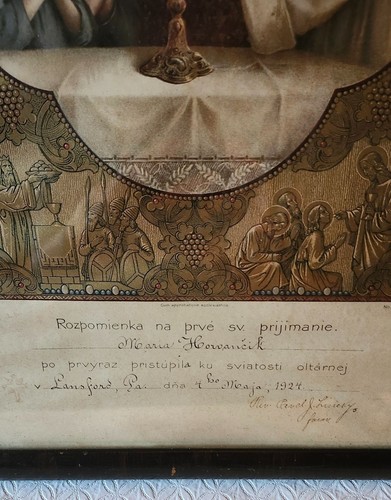 Rozpomienka na prvé sv. prijímanie.
Mara Horvančik
po prvýraz pristúpila ku sviatosti oltárnej
v Lansford, Pa. dňa 4ho Maja, 1924
Rev